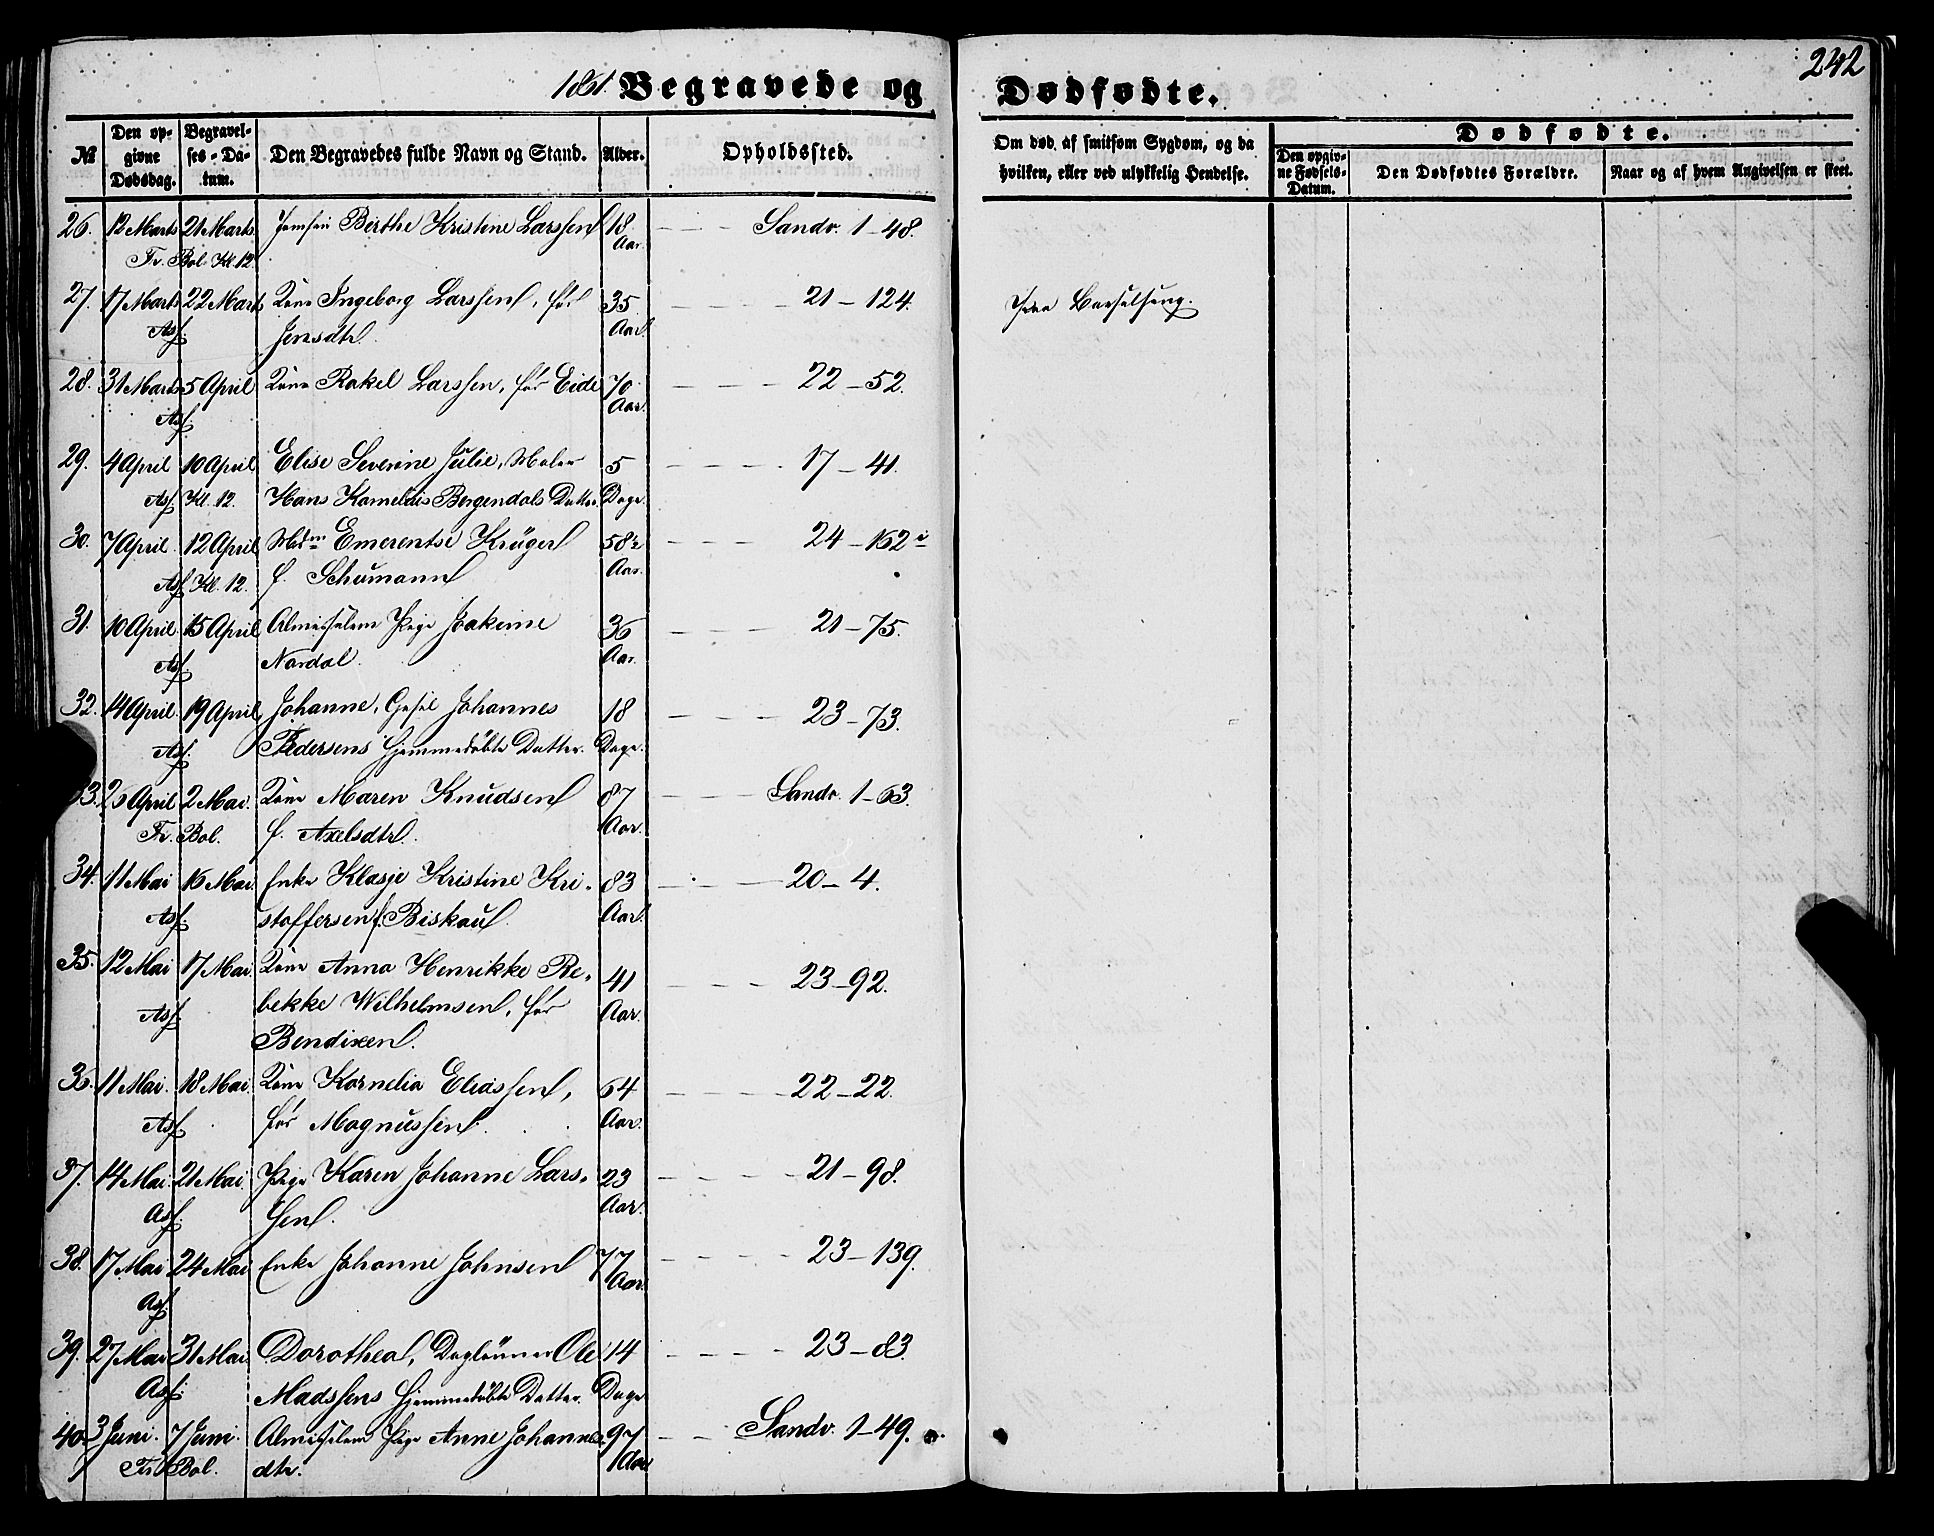 242
1861. Begravede og Dødfødte.
№ Den opgivne Dødsdag. Begravelses-Datum. Den Begravedes fulde Navn og Stand. Alder. Opholdssted. Om død af smitsom Sygdom, og da hvilken, eller ved ulykkelig Hendelse. Dødfødte.
Den opgivne Fødsels-Datum. Den Dødfødtes Forældre. Naar og af hvem Angivelsen er skeet.
26. 12 Marts 21 Marts. Birthe Kristine Larssen 18 Sandv. 1-48.
Fr. Bol. Kl. 12. Aar.
27. 17 Marts 22 Marts Kone Ingeborg Larssen, før 35 21-124. Barselseng.
Asf. Jensdtr. Aar
28. 31 Marts 5 April Kone Rakel Larssen, før Eide 70 22-52.
Asf. Aar.
29. 4 April 10 April Elise Severine Julie, Maler 5 17-41.
Asf. Kl. 12. Hans Kornelius Bergendals Datter. Dage.
30. 7 April 12 April Mdm Emerentse Krüger 58½ 24-162
Asf. Kl. 12. f. Schumann Aar.
31. 10 April 15 April Almisselem Pige Joakime 36 21-75.
Asf. Nordal. Aar.
32. 14 April 19 April Johanne, Johannes 18 23-73.
Asf. Pedersens hjemmedøbte Datter. Dage.
33. 25 April 2 Mai. Kone Maren Knudsen 87 Sandv. 1-63.
Fr. Bol. f. Axelsdtr. Aar.
34. 11 Mai 16 Mai. Enke Klasje Kristine Kri- 83 20-4.
Asf. stoffersen f. Biskau. Aar.
35. 12 Mai 17 Mai. Kone Anna Henrikke Re- 41 23-92.
Asf. bekke Wilhelmsen, før Aar.
Bendixen.
36. 11 Mai. 18 Mai. Kone Kornelia Eliassen, 64 22-22.
Asf. før Magnussen. Aar.
37. 14 Mai. 21 Mai. Pige Karen Johanne Lars- 23 21-98.
Asf. sen. Aar.
38. 17 Mai 24 Mai Enke Johanne Johnsen 77 23-139.
Asf. Aar.
39. 27 Mai 31 Mai. Dorothea, Dagleiner Ole 14 23-83.
Asf. Madssens hjemmedøbte Datter. Dage
40. 3 Juni. 7 Juni. Almisselem Pige Anne Johannes- 97 Sandv. 1-49.
Fr. Bol. dtr. Aar